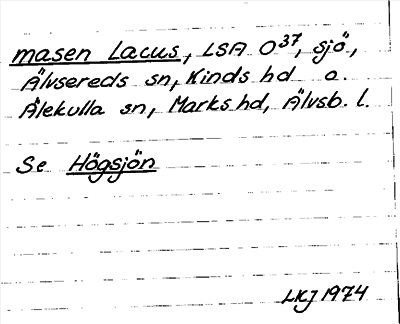 masen Lacus, LSA O37, sjö,
Älvsereds sn, Kinds hd o.
Älekulla sn, Marks hd, Älvsb. l.
Se Högsjön
LKJ 1974